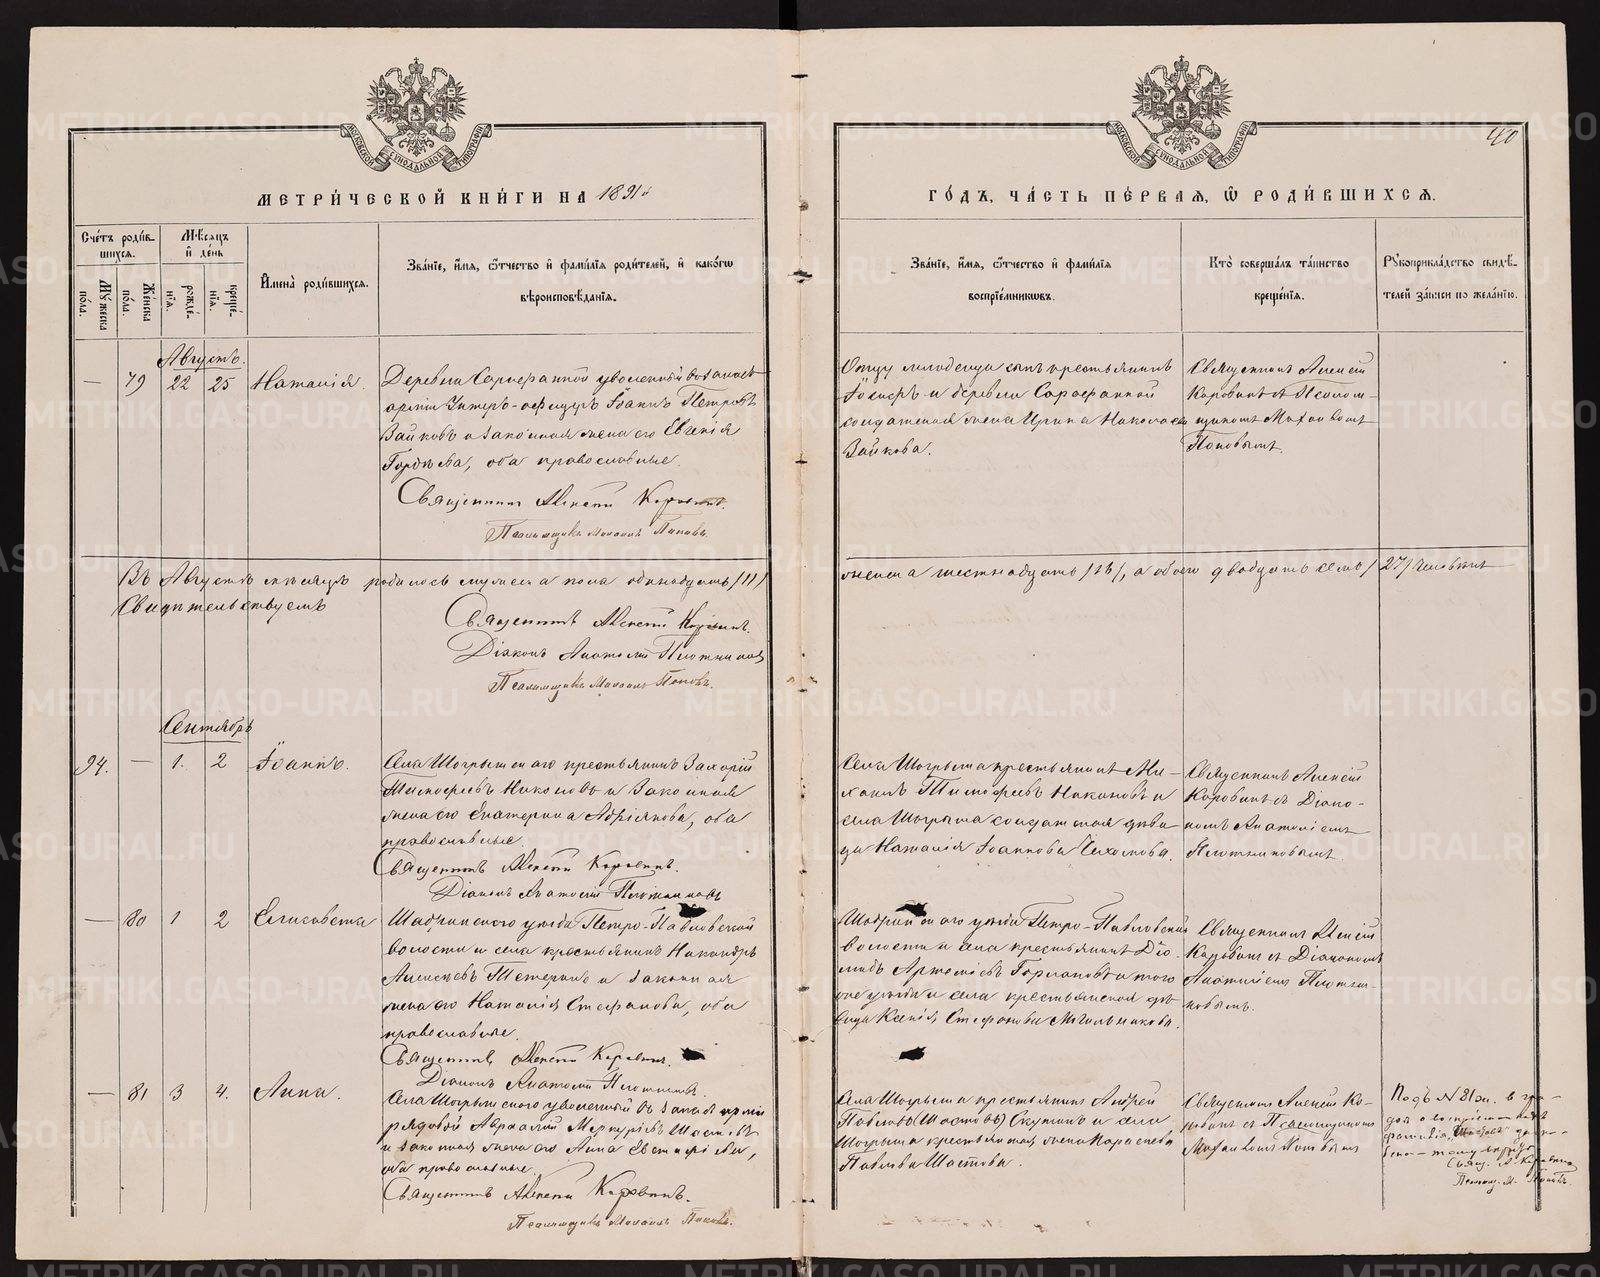 МОСКОВСКОЙ СѴНОДАЛЬНОЙ ТИПОГРАФІИ
МОСКОВСКОЙ СѴНОДАЛЬНОЙ ТИПОГРАФІИ
40
МЕТРИ́ЧЕСКОЙ КНИ́ГИ НА 1891й
ГО́ДЪ, ЧА́СТЬ ПЕ́РВАЯ, Ѽ РОДИ́ВШИХСЯ.
Сче́тъ роди́в-
шихся.
Му́жеска по́ла.
Же́нска по́ла.
Мѣ́сяцъ
и҆ де́нь
рожде́-
нїя.
креще́-
нїя.
И҆мена̀ роди́вшихся.
Зва́нїе, и҆́мя, ѻ҆́тчество и҆ фами́лїя роди́телей, и҆ како́гѡ
вѣроисповѣ́данїя.
Зва́нїе, и҆́мя, ѻ҆́тчество и҆ фами́лїя
воспрїе́мниковъ.
Кто̀ соверша́лъ та́инство
креще́нїя.
Рꙋкоприкла́дство свидѣ́-
телей за́писи по жела́нїю.
Августъ.
— 79 22 25 Наталія.
Деревни Сарафанной уволенный въ запасъ
арміи Унтеръ-офицеръ Іоаннъ Петровъ
Зайковъ и законная жена его Евгенія
Гордѣева, оба православные.
Священникъ Алексѣй Коровинъ.
Псаломщикъ Михаилъ Поповъ.
Отцу младенца сынъ крестьянинъ
и деревни Сарафанной
солдатская жена Ирина Николаева
Зайкова.
Священникъ Алексѣй
Коровинъ съ Псалом-
щикомъ Михаиломъ
Поповымъ.
Въ Августѣ мѣсяцѣ родилось мужеска пола одинадцать /11/
женска шестнадцать /16/, а обоего двадцать семь /27/ человѣкъ
Свидѣтельствуемъ
Священникъ Алексѣй Коровинъ.
Діаконъ Анатолій Плотниковъ
Псаломщикъ Михаилъ Поповъ.
Сентябрь
94. — 1. 2 Іоаннъ.
Села Шогрышскаго крестьянинъ Захарій
Тимофеевъ Никоновъ и законная
жена его Екатерина Адріянова, оба
православные.
Священникъ Алексѣй Коровинъ.
Діаконъ Анатолій Плотниковъ
Села Шогрыша крестьянинъ Ми-
хаилъ Тимофеевъ Никоновъ и
села Шогрыша солдатская дѣви-
ца Наталія Іоаннова
Священникъ Алексѣй
Коровинъ съ Діако-
номъ Анатоліемъ
Плотниковымъ.
— 80 1 2 Елисавета
Шадринскаго уѣзда Петро-Павловской
волости и села крестьянинъ Никандръ
Алексѣевъ и законная
жена его Наталія Стефанова, оба
православные.
Священникъ Алексѣй Коровинъ.
Діаконъ Анатолій Плотниковъ.
Шадринскаго уѣзда Петро-Павловской
волости и села крестьянинъ Діо-
мидъ Артемьевъ и того
же уѣзда и села крестьянская дѣ-
вица Ксенія Стефанова
Священникъ Алексѣй
Коровинъ съ Діакономъ
Анатоліемъ Плотни-
ковымъ.
— 81 3 4. Анна.
Села Шогрышскаго уволенный въ запасъ арміи
рядовой Авраамій Меркурьевъ Шастовъ
и законная жена его Анна Евстафіева,
оба православные.
Священникъ Алексѣй Коровинъ.
Псаломщикъ Михаилъ Поповъ.
Села Шогрыша крестьянинъ Андрей
Павловъ (Шастовъ) Скутинъ и села
Шогрыша крестьянская жена Параскева
Павлова Шастова.
Священникъ Алексѣй Ко-
ровинъ съ Псаломщикомъ
Михаиломъ Поповымъ
Подъ № 81 ж. въ гра-
фѣ о
фамилія „Шастовъ“
Свящ. А. Коровинъ
Псаломщ. М. Поповъ.
METRIKI.GASO-URAL.RU